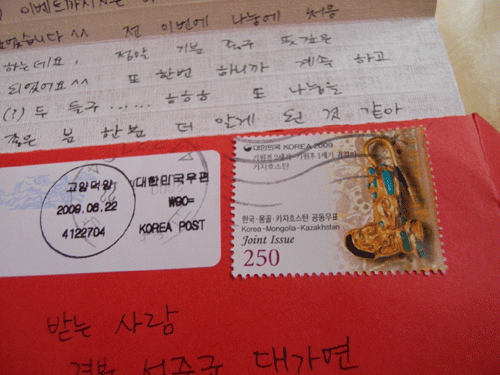 이벤트까지
었습니다 ^^ 전 이번에 나눔에 처음
하는데요, 정말 기분 좋구 뜻깊은
되었어요 ^^ 또 한번 하니까 계속 하고
(!) 두 들구...... ㅎㅎㅎ 또 나눔을
좋은 분 한분 더 알게 된 것 같아
고양덕양
2009.06.22
4122704
대한민국우편
₩90=
KOREA POST
대한민국 KOREA 2009
카자흐스탄
한국·몽골·카자흐스탄 공동우표
Korea-Mongolia-Kazakhstan
Joint Issue
250
받는 사람
경북 성주군 대가면